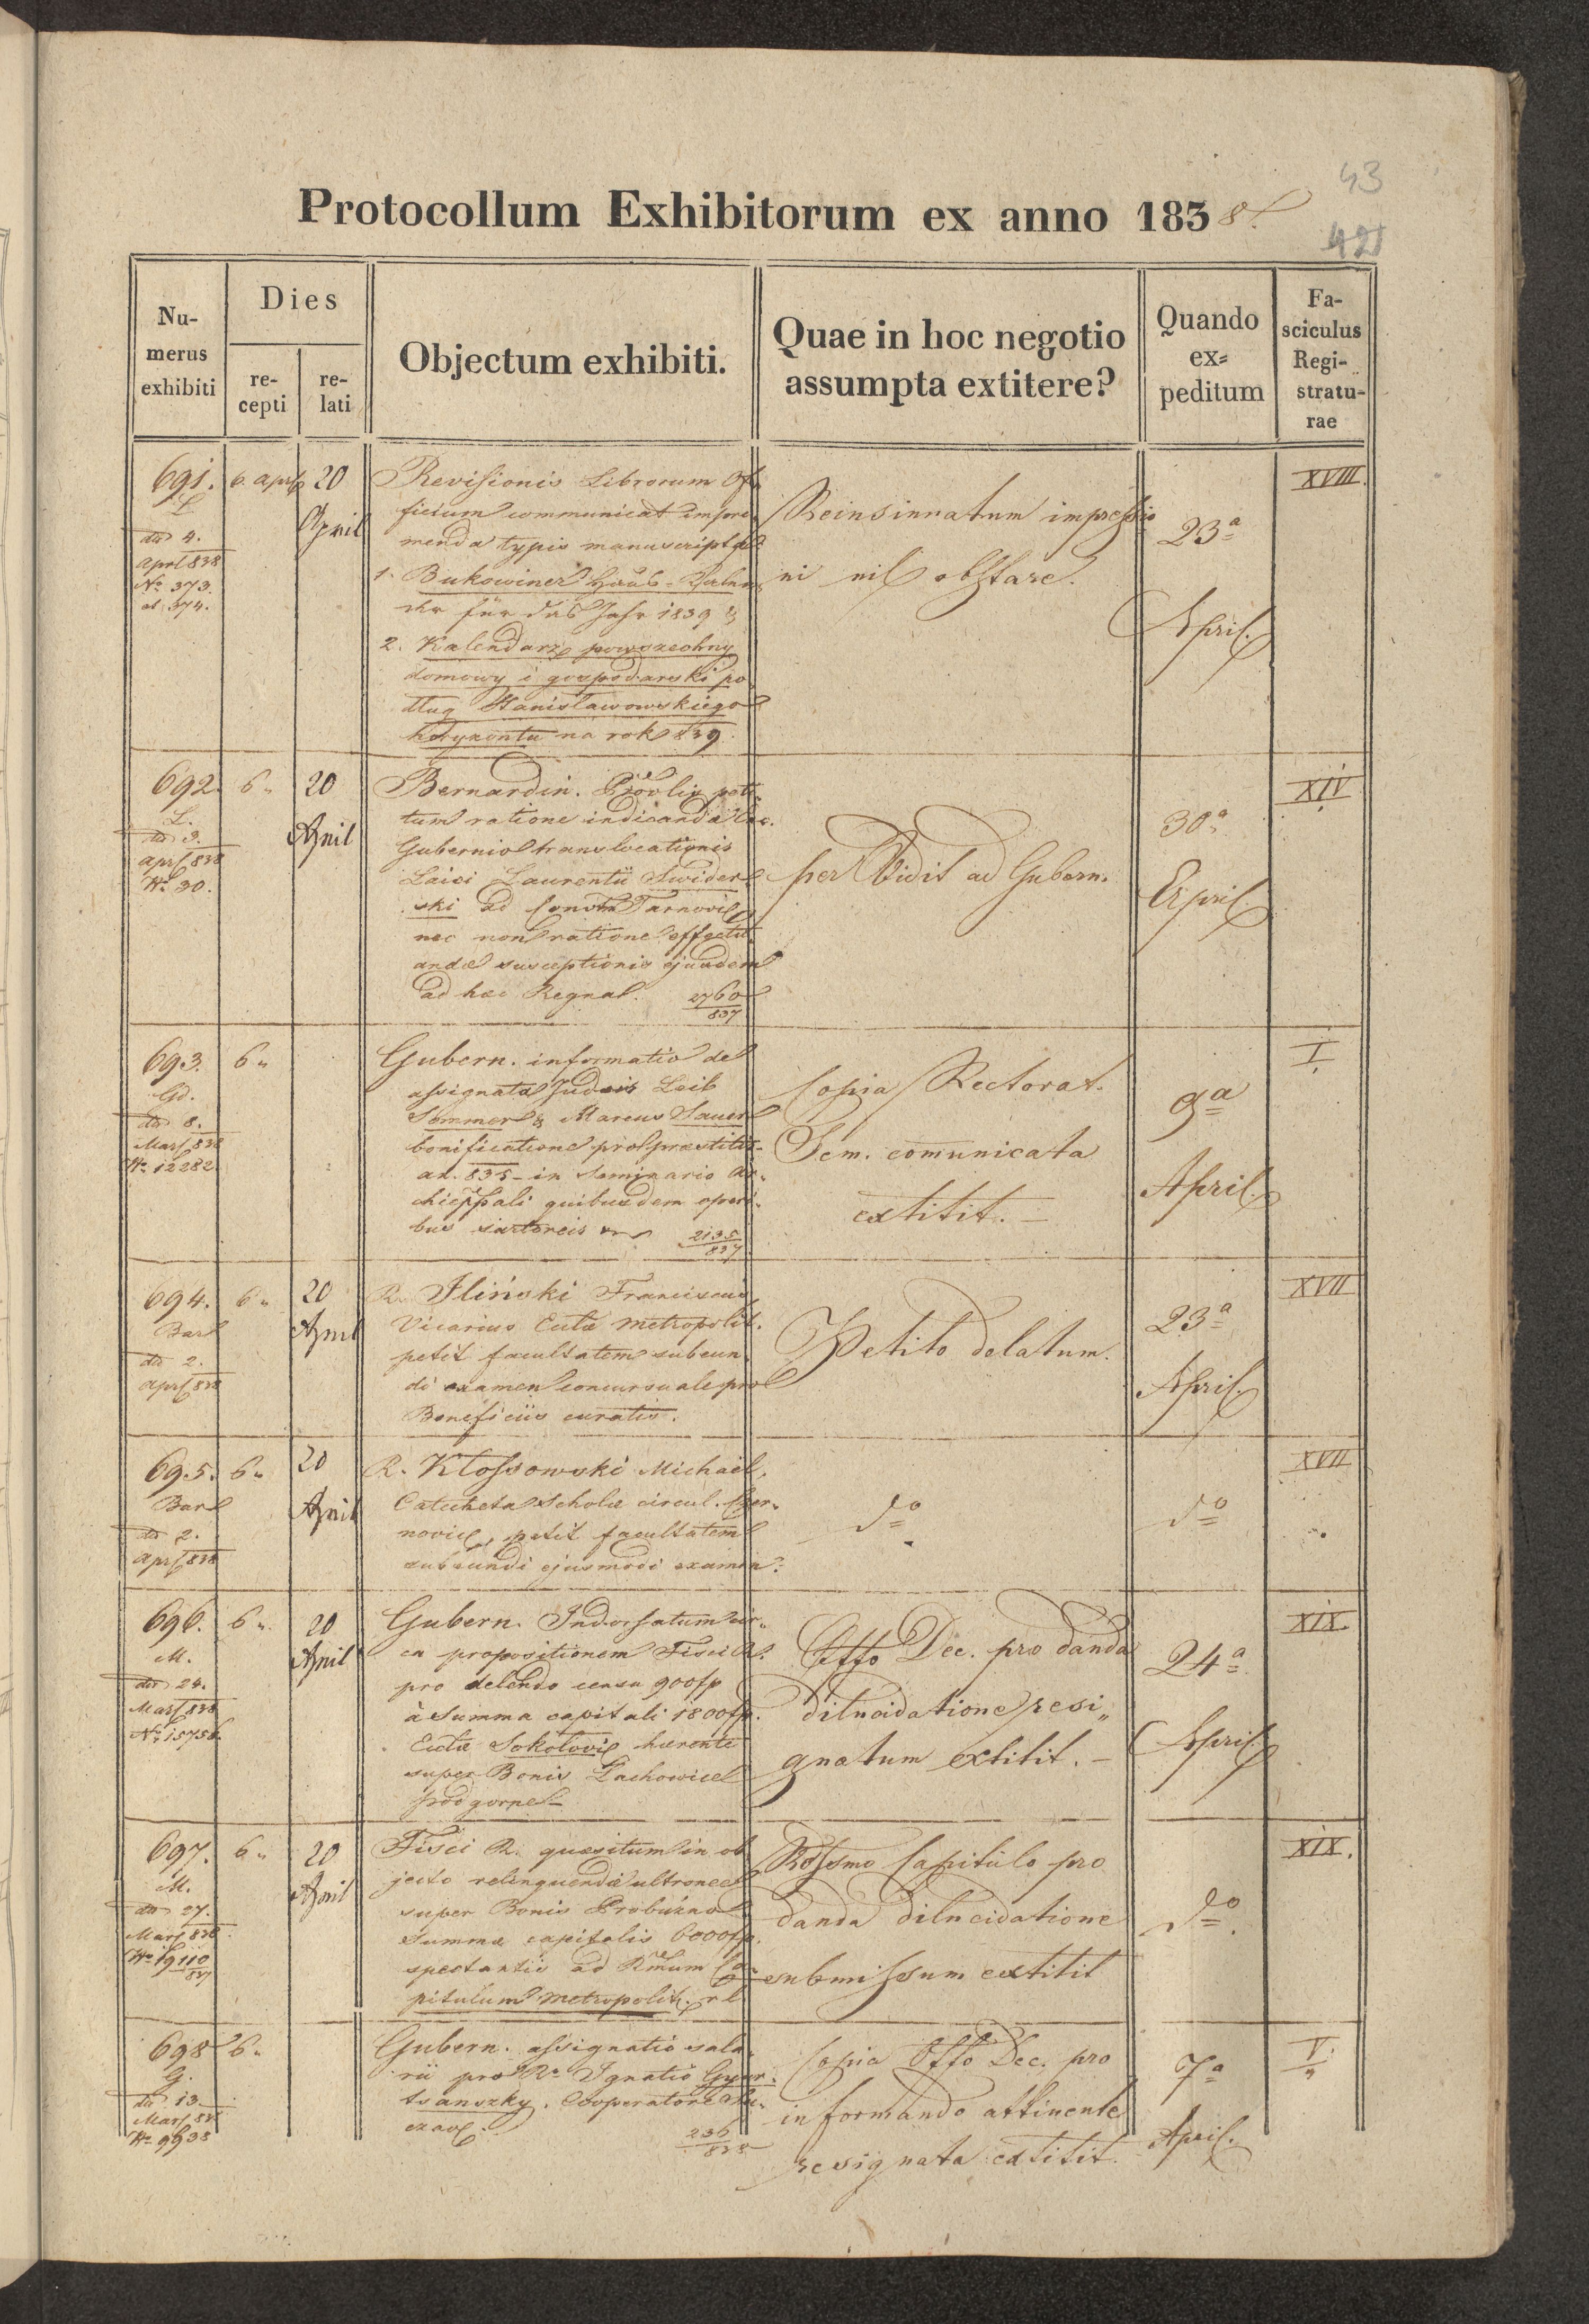 43
42
Protocollum Exhibitorum ex anno 1838.
Numerus exhibiti
Dies
recepti
relati
Objectum exhibiti.
Quae in hoc negotio assumpta extitere?
Quando ex=peditum
Fasciculus Regi-straturae
691. L
dto 4. Apr 838
No 373. et 374.
6. Apr
20 April
Revisionis Librorum Of-
ficium communicat impri-
menda typis manuscripta
1. Bukowiner Haus-Kalen-
der für das Jahr 1839 &
2. Kalendarz powszechny
domowy i gospodarski po-
dług Stanisławowskiego
horyzontu na rok 839.
Reinsinuatum impressio
ni nil obstare.
23a April.
XVIII.
692. L.
dto 3. Apr 838
No 30.
6"
20 April
Bernardin. Provlis peti-
tum ratione indicandae Exc.
Gubernio translocationis
Laici Laurentii Swider-
ski ad Convtm Tarnovic
nec non ratione
andae susceptionis ejusdem
ad hae Regnal. 2760/837
per Vidit ad Gubern.
30a April.
XIV
693. Gd.
dto 8. Mar 838
No 12282.
6"
Gubern. informatio de
assignata Judaeis Leib
Sommer & Marcus Sauer
bonificatione pro praestitis
ao. 835 in Seminario Ar-
chieppali quibusdem operi-
bus sartoreis 2135/837
Copia Rectorat.
Sem. comunicata
extitit. —
9a April.
I.
694. Bar
dto 2. Apr 838
6"
20 April
R. Iliński Franciscus
Vicarius Ecclae Metropolit.
petit facultatem subeun-
di examen concursuale pro
Beneficiis curatis.
Petito delatum.
23a April.
XVII
695. Bar
dto 2. Apr 838
6"
20 April
R. Kłossowski Michael,
Catecheta Scholae circul. Czer-
novic, petit facultatem
subeundi ejusmodi examen.
do
do
XVII
696. M.
dto 24. Mar 838
No 15756.
6"
20 April
Gubern. Indorsatum cir-
ca propositionem Fisci R.
pro delendo censu 900 fp
à Summa capitali 1800 fp.
Ecclae Sokołovi haerente
super Bonis Lachowice
podgorne
Offo Dec. pro danda
dilucidatione resi-
gnatum extitit. —
24a April.
XIX.
697. M.
dto 27. Mar 838
No 19110/837
6"
20 April
Fisci R. quaesitum in ob-
jecto relinquendae ultronee
super Bonis Probużna
Summae capitalis 6000 fp.
spectantis ad Rmum Ca-
pitulum Metropolit. r. l.
Rdssmo Capitulo pro
danda dilucidatione
submissum extitit
do.
XIX.
698 G.
dto 13. Mar 838
No 9938
6"
Gubern. assignatio sala-
rii pro Ro Ignatio Gyur-
tsanszky. Cooperatore
236/838
Copia Offo Dec. pro
informando attinente
resignata extitit.
7a April.
V.